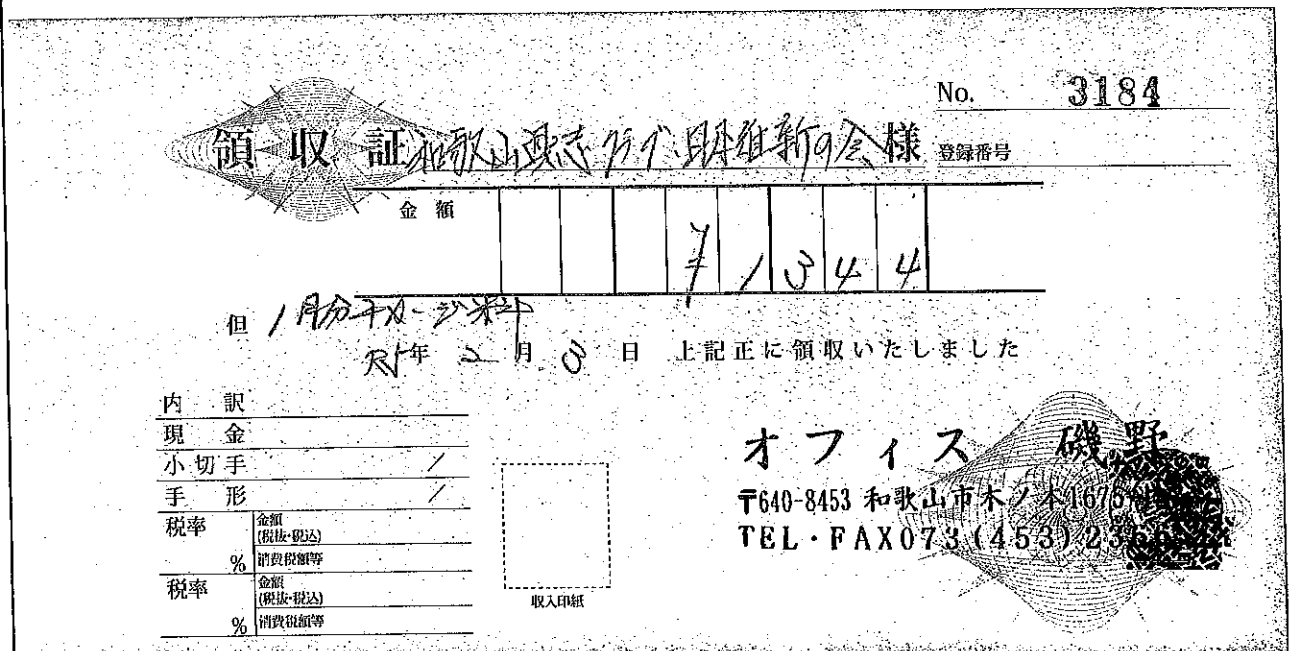 No. 3184
領収証 和歌山 クラブ 日本維新の会 様 登録番号
金額 ¥1344
但 1月分チャージ料
R5年 2月 3日 上記正に領収いたしました
内訳
現金
小切手 /
手形 /
税率 % 金額(税抜・税込) 消費税額等
税率 % 金額(税抜・税込) 消費税額等
収入印紙
オフィス 磯野
〒640-8453 和歌山市木ノ本1675
TEL・FAX073(453)